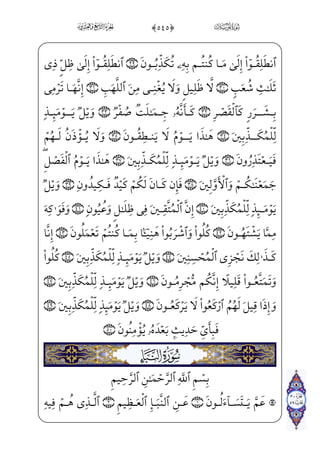 ﴿٥٤٥﴾
ٱنطَلِقُوٓا۟ إِلَىٰ مَا كُنتُم بِهِۦ تُكَذِّبُونَ ۝٢٩ ٱنطَلِقُوٓا۟ إِلَىٰ ظِلٍّ ذِى
ثَلَٰثِ شُعَبٍ ۝٣٠ لَّا ظَلِيلٍ وَلَا يُغْنِى مِنَ ٱللَّهَبِ ۝٣١ إِنَّهَا تَرْمِى
بِشَرَرٍ كَٱلْقَصْرِ ۝٣٢ كَأَنَّهُۥ جِمَٰلَتٌ صُفْرٌ ۝٣٣ وَيْلٌ يَوْمَئِذٍ
لِّلْمُكَذِّبِينَ ۝٣٤ هَٰذَا يَوْمُ لَا يَنطِقُونَ ۝٣٥ وَلَا يُؤْذَنُ لَهُمْ
فَيَعْتَذِرُونَ ۝٣٦ وَيْلٌ يَوْمَئِذٍ لِّلْمُكَذِّبِينَ ۝٣٧ هَٰذَا يَوْمُ ٱلْفَصْلِ
جَمَعْنَٰكُمْ وَٱلْأَوَّلِينَ ۝٣٨ فَإِن كَانَ لَكُمْ كَيْدٌ فَكِيدُونِ ۝٣٩ وَيْلٌ
يَوْمَئِذٍ لِّلْمُكَذِّبِينَ ۝٤٠ إِنَّ ٱلْمُتَّقِينَ فِى ظِلَٰلٍ وَعُيُونٍ ۝٤١ وَفَوَٰكِهَ
مِمَّا يَشْتَهُونَ ۝٤٢ كُلُوا۟ وَٱشْرَبُوا۟ هَنِيٓـًٔۢا بِمَا كُنتُمْ تَعْمَلُونَ ۝٤٣ إِنَّا
كَذَٰلِكَ نَجْزِى ٱلْمُحْسِنِينَ ۝٤٤ وَيْلٌ يَوْمَئِذٍ لِّلْمُكَذِّبِينَ ۝٤٥ كُلُوا۟
وَتَمَتَّعُوا۟ قَلِيلًا إِنَّكُم مُّجْرِمُونَ ۝٤٦ وَيْلٌ يَوْمَئِذٍ لِّلْمُكَذِّبِينَ ۝٤٧
وَإِذَا قِيلَ لَهُمُ ٱرْكَعُوا۟ لَا يَرْكَعُونَ ۝٤٨ وَيْلٌ يَوْمَئِذٍ لِّلْمُكَذِّبِينَ ۝٤٩
فَبِأَىِّ حَدِيثٍۭ بَعْدَهُۥ يُؤْمِنُونَ ۝٥٠
سُورَةُ النَّبَإِ
بِسْمِ ٱللَّهِ ٱلرَّحْمَٰنِ ٱلرَّحِيمِ
عَمَّ يَتَسَآءَلُونَ ۝١ عَنِ ٱلنَّبَإِ ٱلْعَظِيمِ ۝٢ ٱلَّذِى هُمْ فِيهِ